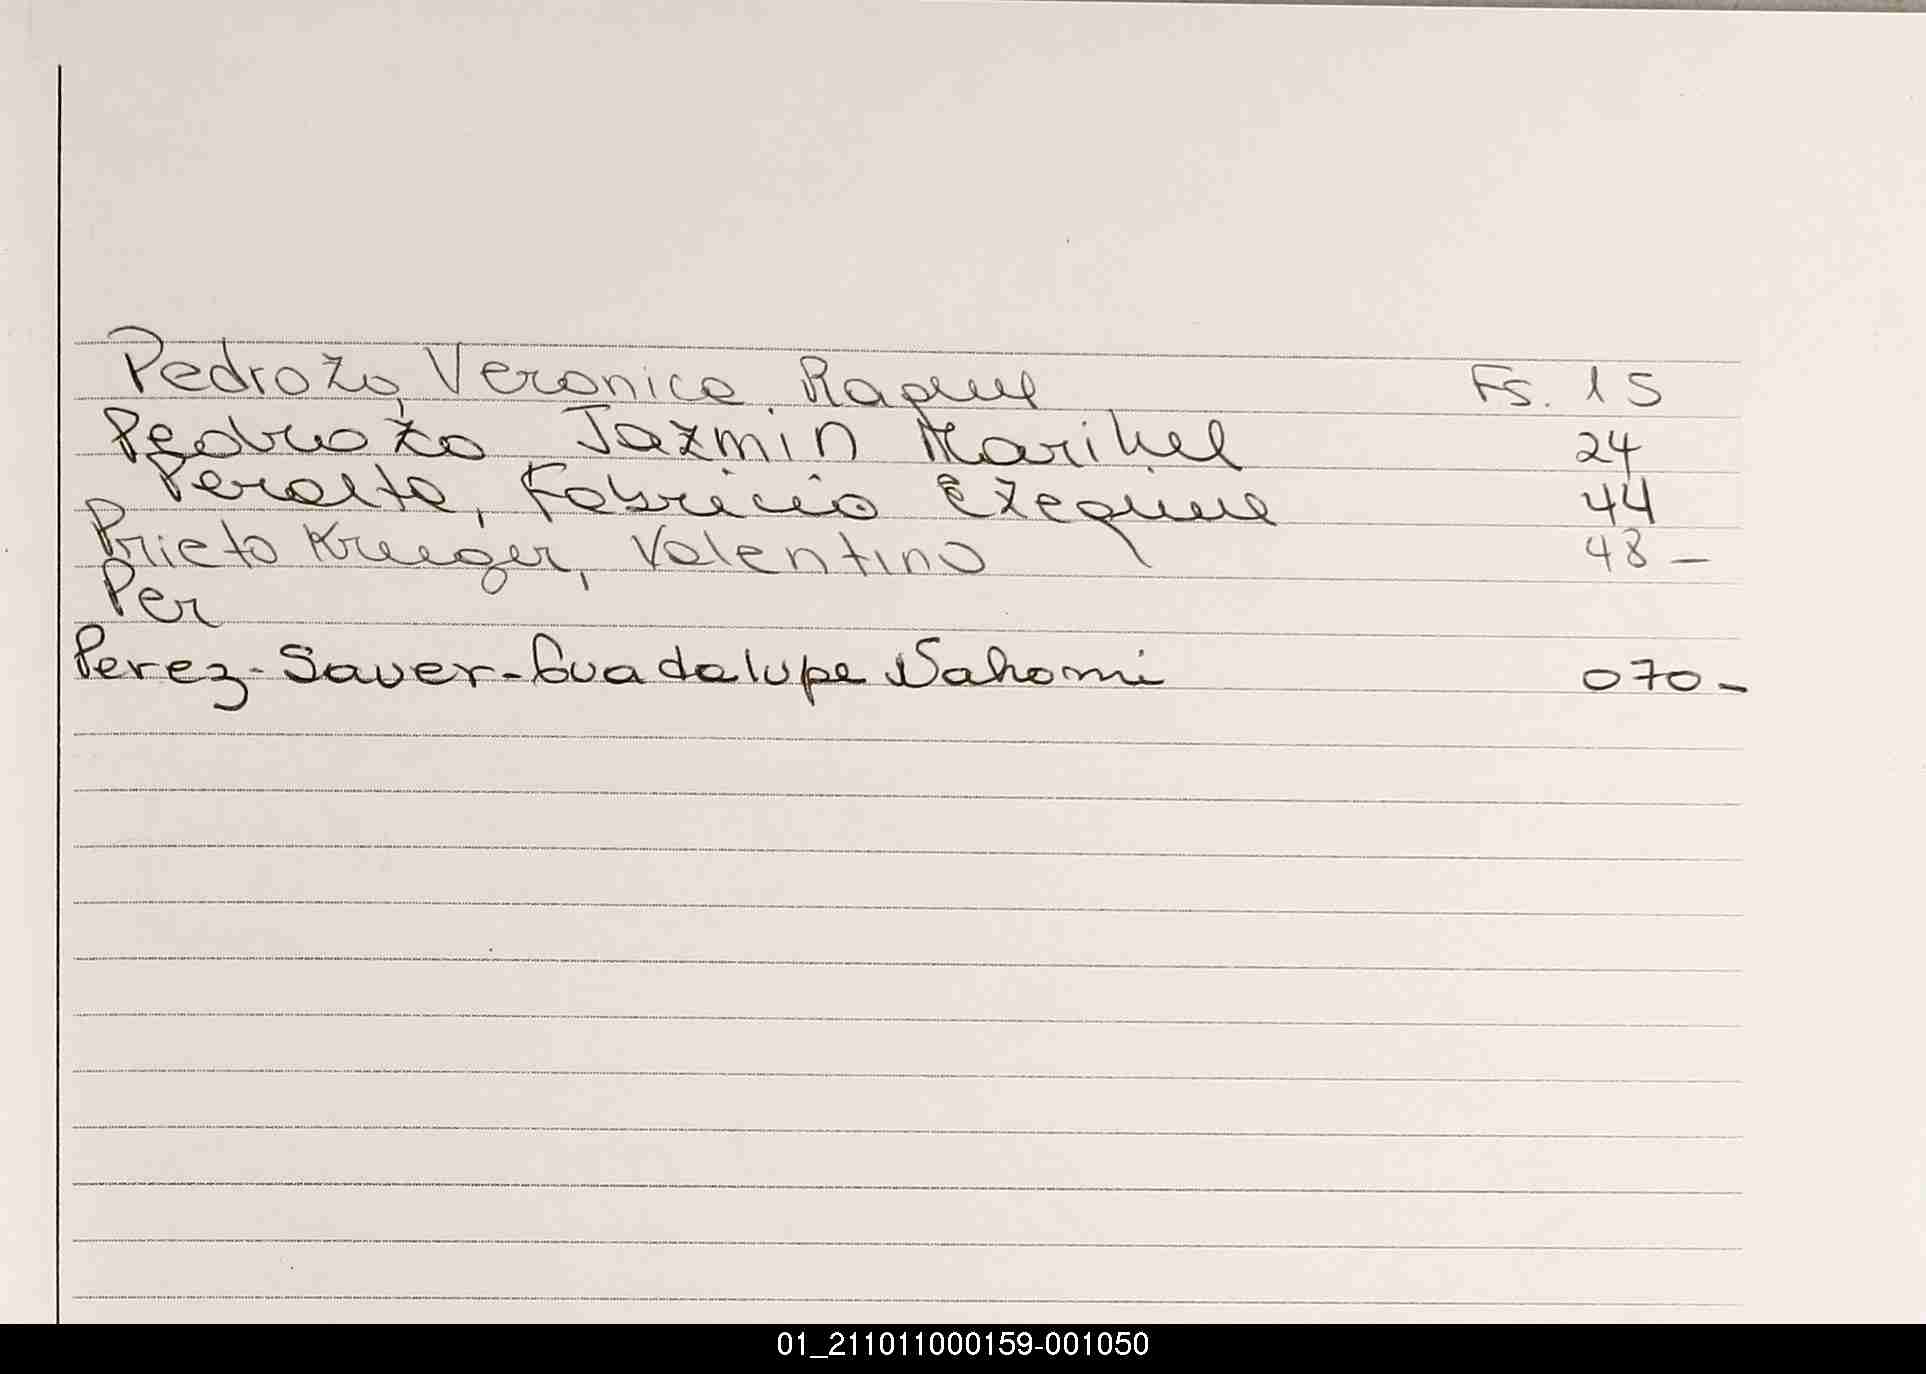 Pedrozo, Veronica Raquel Fs. 15
Pedrozo Jazmin Marihel 24
Peralta, Fabricio Ezequiel 44
Prieto Krueger, Valentino 48 -
Per
Perez - Sauer - Guadalupe Nahomi 070 -
01_211011000159-001050